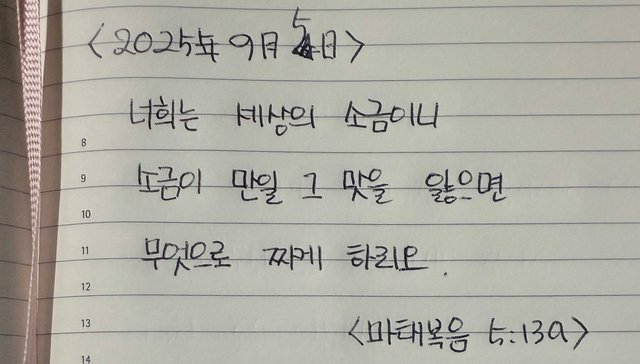 <2025年 9月 5日>
너희는 세상의 소금이니
8
소금이 만일 그 맛을 잃으면
9
10
무엇으로 짜게 하리오.
11
12
<마태복음 5:13a>
13
14